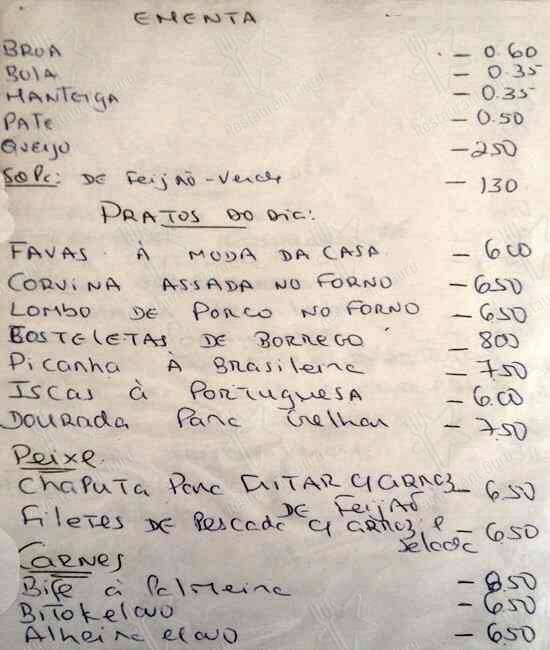 EMENTA
BROA - 0.60
BOLA - 0.35
MANTEIGA - 0.35
PATE - 0.50
QUEIJO - 250
SOPA: DE FEIJÃO-Verde - 130
PRATOS DO DIA:
FAVAS À MODA DA CASA - 600
CORVINA ASSADA NO FORNO - 650
LOMBO DE PORCO NO FORNO - 650
COSTELETAS DE BORREGO - 800
Picanha À Brasileira - 750
ISCAS à PORTUGUESA - 6.00
DOURADA Para Grelhar - 750
Peixe
Chaputa Para FRITAR C/ARROZ - 6.50
DE FEIJÃO
Filetes DE Pescada C/ ARROZ e - 6.50
Salada
CARNES
Bife à Palmeira - 8.50
BITOK elavo - 650
Alheira elavo - 650